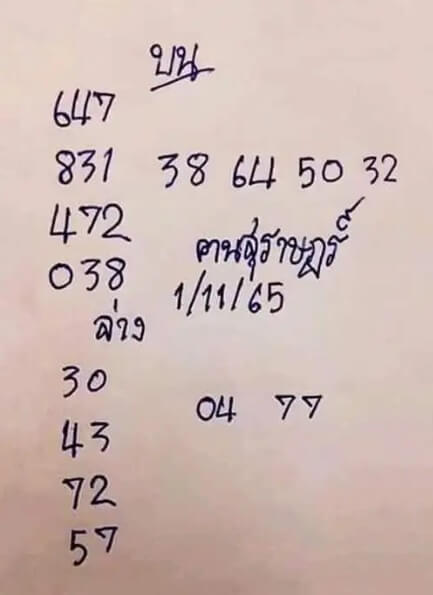 บน
647
831 38 64 50 32
472
คนสุราษฎร์
038
1/11/65
ล่าง
30
04 77
43
72
57